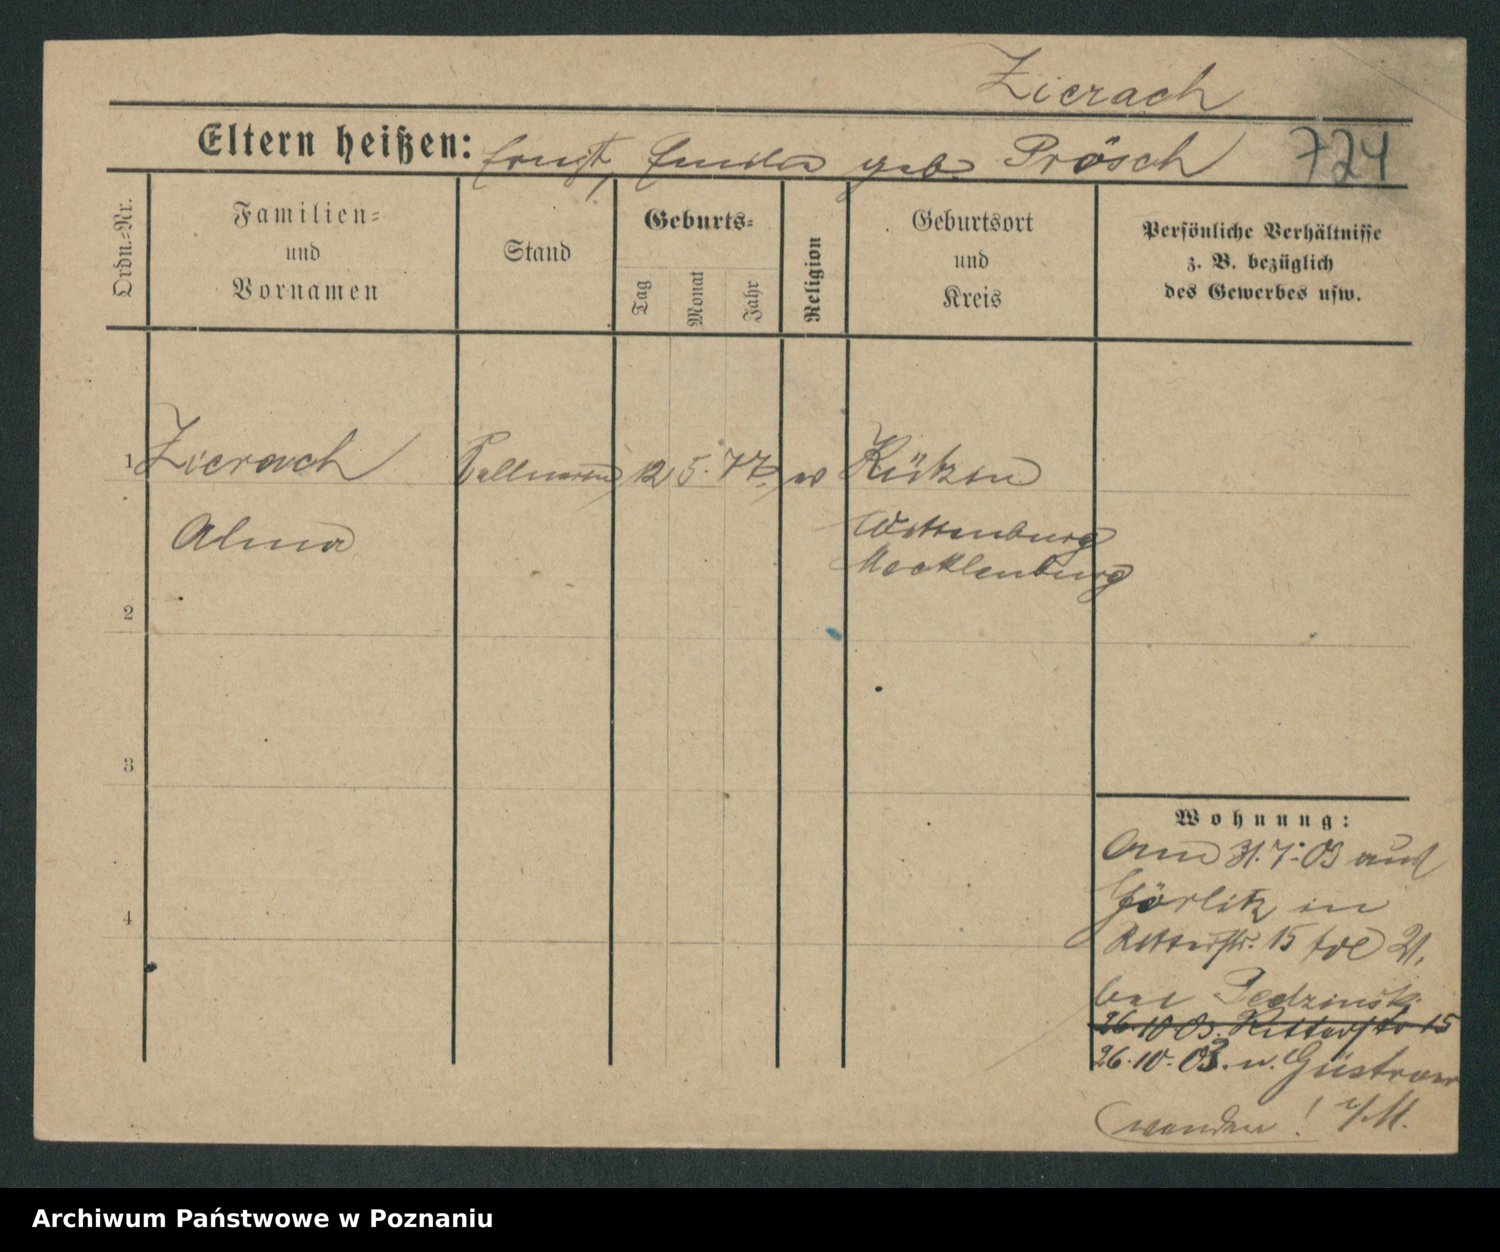 Zierach
Eltern heißen: Ernst, Emilia geb. Prösch 724
Ordn.-Nr.
Familien- und Vornamen
Stand
Geburts-
Tag
Monat
Jahr
Religion
Geburtsort und Kreis
Persönliche Verhältnisse z. B. bezüglich des Gewerbes usw.
1 Zierach 12 5. 77. Kützin
Alma Wittenburg
Mecklenburg
2
3
4
Wohnung:
Am 31.7.03 aus
Görlitz in
Ritterstr. 15
bei Pedzinski
26.10 03. Ritterstr 15
26.10.03. n. Güstrow
i/M.
wenden!
Archiwum Państwowe w Poznaniu